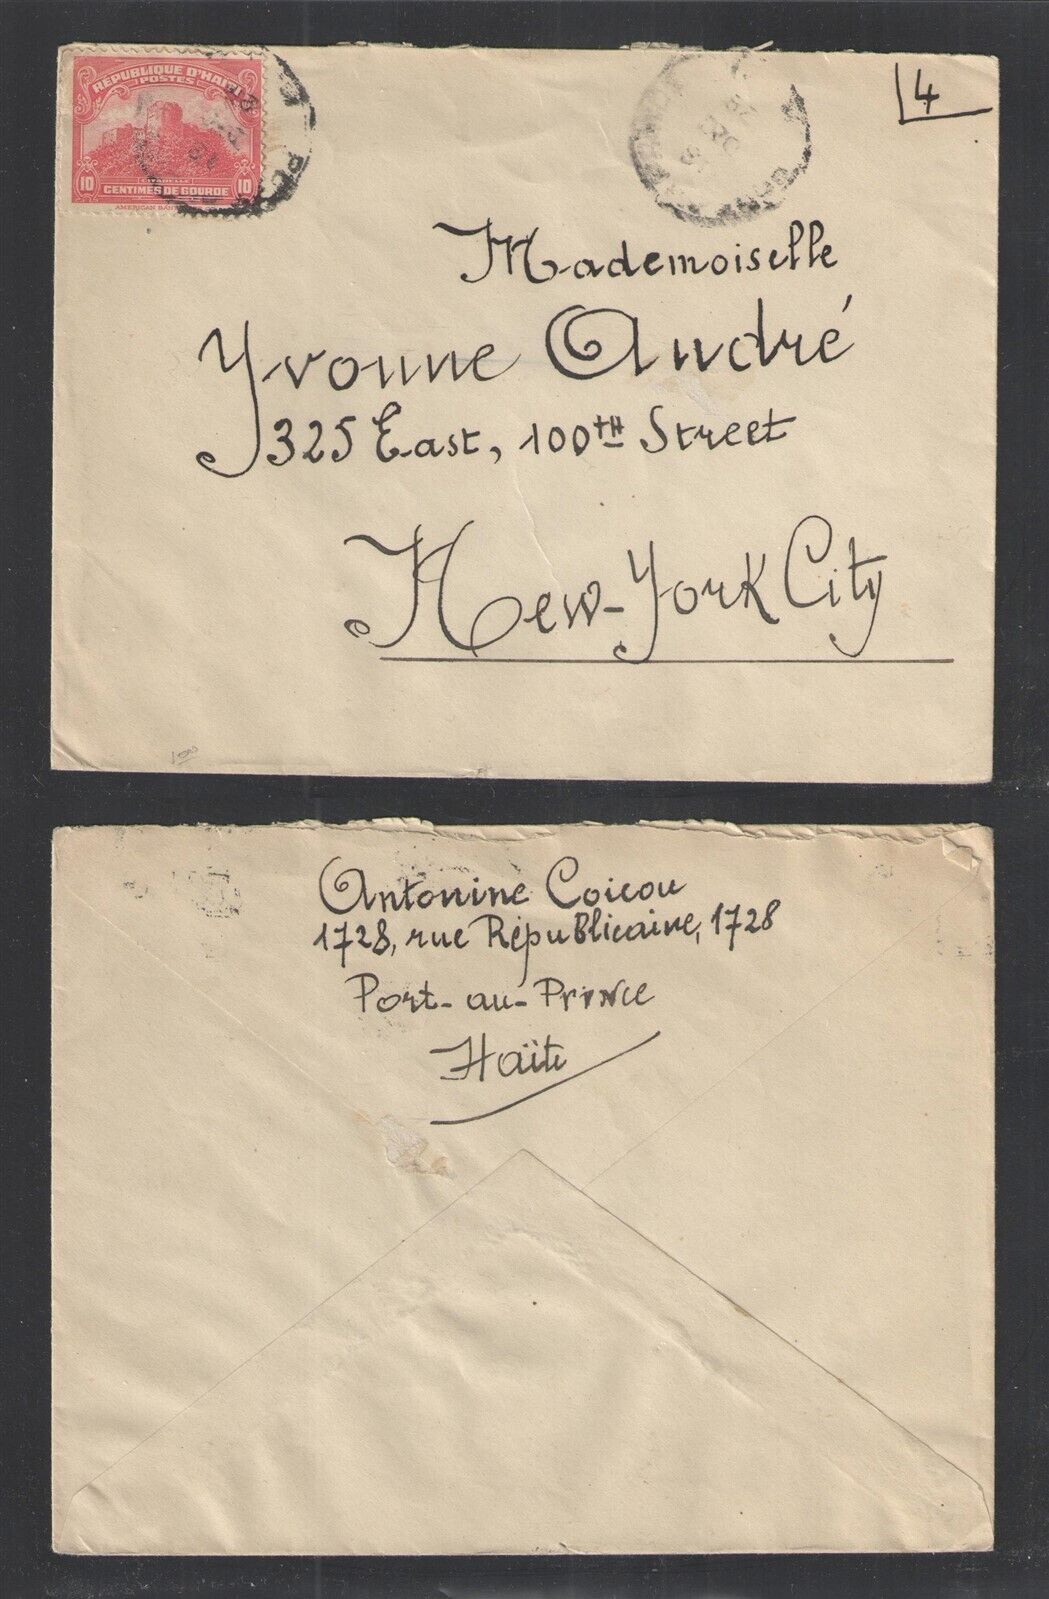 RÉPUBLIQUE D'HAITI
POSTES
10 CITADELLE 10
CENTIMES DE GOURDE
AMERICAN
4
Mademoiselle
Yvonne André
325 East, 100TH Street
New-York City
Antonine Coicou
1728, rue Républicaine, 1728
Port-au-Prince
Haïti